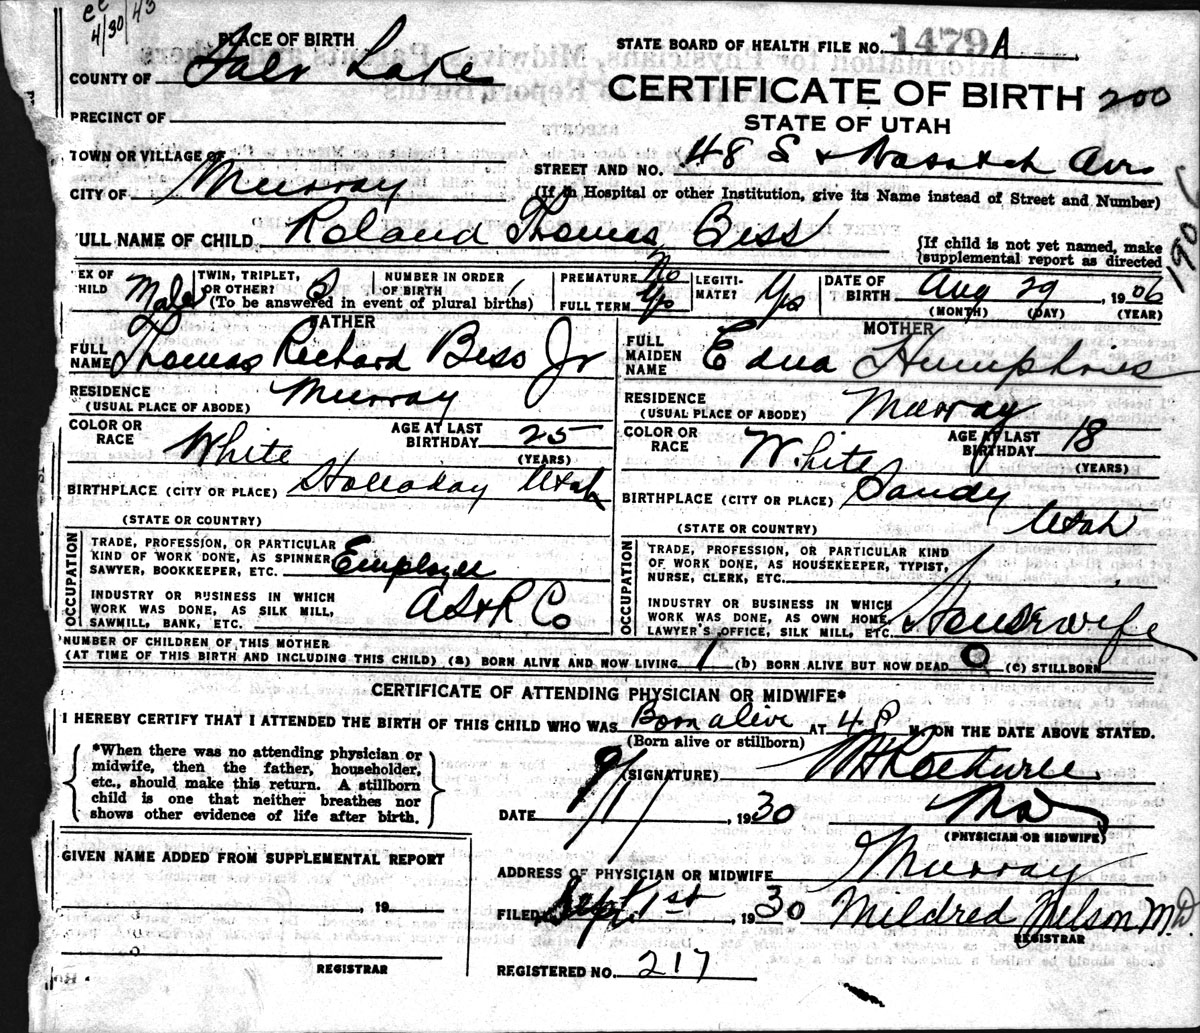 4/30/43
PLACE OF BIRTH
STATE BOARD OF HEALTH FILE NO. 1479A
COUNTY OF Salt Lake
CERTIFICATE OF BIRTH 200
PRECINCT OF
STATE OF UTAH
TOWN OR VILLAGE OF
STREET AND NO. 48 S & Wasatch Ave
CITY OF Murray
(If in Hospital or other Institution, give its Name instead of Street and Number)
ULL NAME OF CHILD Roland Thomas Bess
{If child is not yet named, make
{supplemental report as directed
190
EX OF HILD Male
TWIN, TRIPLET, OR OTHER? S
NUMBER IN ORDER OF BIRTH 1
(To be answered in event of plural births)
PREMATURE No
FULL TERM Yes
LEGITI-MATE? Yes
DATE OF BIRTH Aug 29, 1906
(MONTH) (DAY) (YEAR)
FATHER
FULL NAME Thomas Richard Bess Jr
RESIDENCE Murray
(USUAL PLACE OF ABODE)
COLOR OR RACE White
AGE AT LAST BIRTHDAY 25
(YEARS)
BIRTHPLACE (CITY OR PLACE) Holladay Utah
(STATE OR COUNTRY)
OCCUPATION
TRADE, PROFESSION, OR PARTICULAR
KIND OF WORK DONE, AS SPINNER
SAWYER, BOOKKEEPER, ETC. Employee
INDUSTRY OR BUSINESS IN WHICH
WORK WAS DONE, AS SILK MILL,
SAWMILL, BANK, ETC. AS&R Co
MOTHER
FULL MAIDEN NAME Edna Humphries
RESIDENCE Murray
(USUAL PLACE OF ABODE)
COLOR OR RACE White
AGE AT LAST BIRTHDAY 18
(YEARS)
BIRTHPLACE (CITY OR PLACE) Sandy
(STATE OR COUNTRY) Utah
OCCUPATION
TRADE, PROFESSION, OR PARTICULAR KIND
OF WORK DONE, AS HOUSEKEEPER, TYPIST,
NURSE, CLERK, ETC.
INDUSTRY OR BUSINESS IN WHICH
WORK WAS DONE, AS OWN HOME,
LAWYER'S OFFICE, SILK MILL, ETC. Housewife
NUMBER OF CHILDREN OF THIS MOTHER
(AT TIME OF THIS BIRTH AND INCLUDING THIS CHILD) (a) BORN ALIVE AND NOW LIVING 1 (b) BORN ALIVE BUT NOW DEAD 0 (c) STILLBORN
CERTIFICATE OF ATTENDING PHYSICIAN OR MIDWIFE*
I HEREBY CERTIFY THAT I ATTENDED THE BIRTH OF THIS CHILD WHO WAS Born alive AT 4 P M. ON THE DATE ABOVE STATED.
(Born alive or stillborn)
*When there was no attending physician or
midwife, then the father, householder,
etc., should make this return. A stillborn
child is one that neither breathes nor
shows other evidence of life after birth.
(SIGNATURE)
DATE 9/1/, 1930 MD
(PHYSICIAN OR MIDWIFE)
GIVEN NAME ADDED FROM SUPPLEMENTAL REPORT
, 19
REGISTRAR
ADDRESS OF PHYSICIAN OR MIDWIFE Murray
FILED Sept. 1st 1930 Mildred Nelson M.D.
REGISTRAR
REGISTERED NO. 217